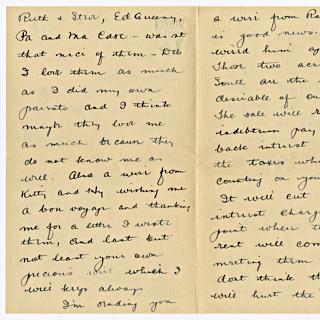 Ruth & Stow, Ed Queeny,
Pa and Ma Case - wasnt
that nice of them - Both
I love them as much
as I did my own
parents and I think
maybe they love me
as much because they
do not know me as
well. Also a wire from
Kitty and Hy wishing me
a bon voyage and thanking
me for a letter I wrote
them, and last but
not least your own
precious wire which I
will keep always
I'm sending you
a wire from
is good news.
wired him
Those two
South are the
desirable of our
The sale will
indebtness pay
back interest
the taxes which
counting on you
It will cut
interest charges
point where the
rent will come
meeting them
dont think th
will hurt the